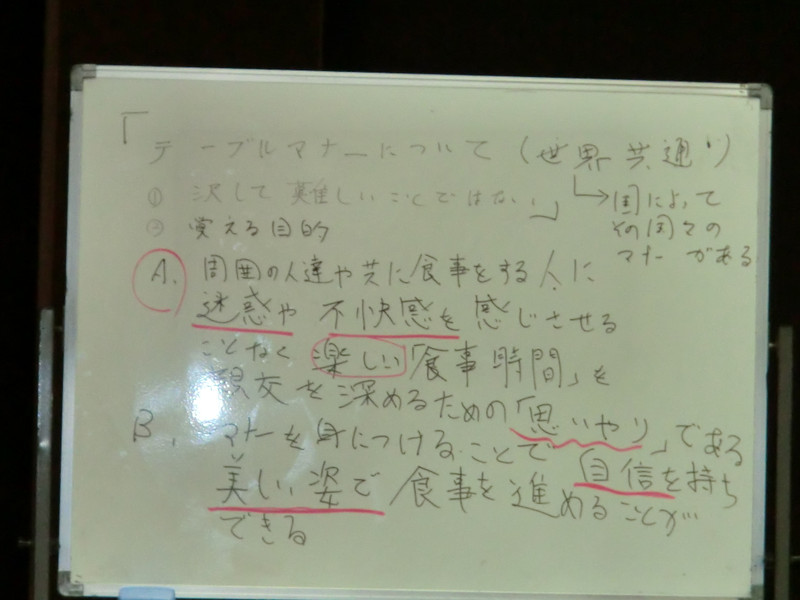 「テーブルマナーについて (世界共通り)
① 沢して難しいことではない」
└→国によって
その国々の
マナーがある
② 覚える目的
A. 周囲の人達や共に食事をする人に
迷惑や不快感を感じさせる
ことなく楽しい「食事時間」を
親交を深めるための「思いやり」である
B. マナーを身につけることで自信を持ち
美しい姿で食事を進めることが
できる